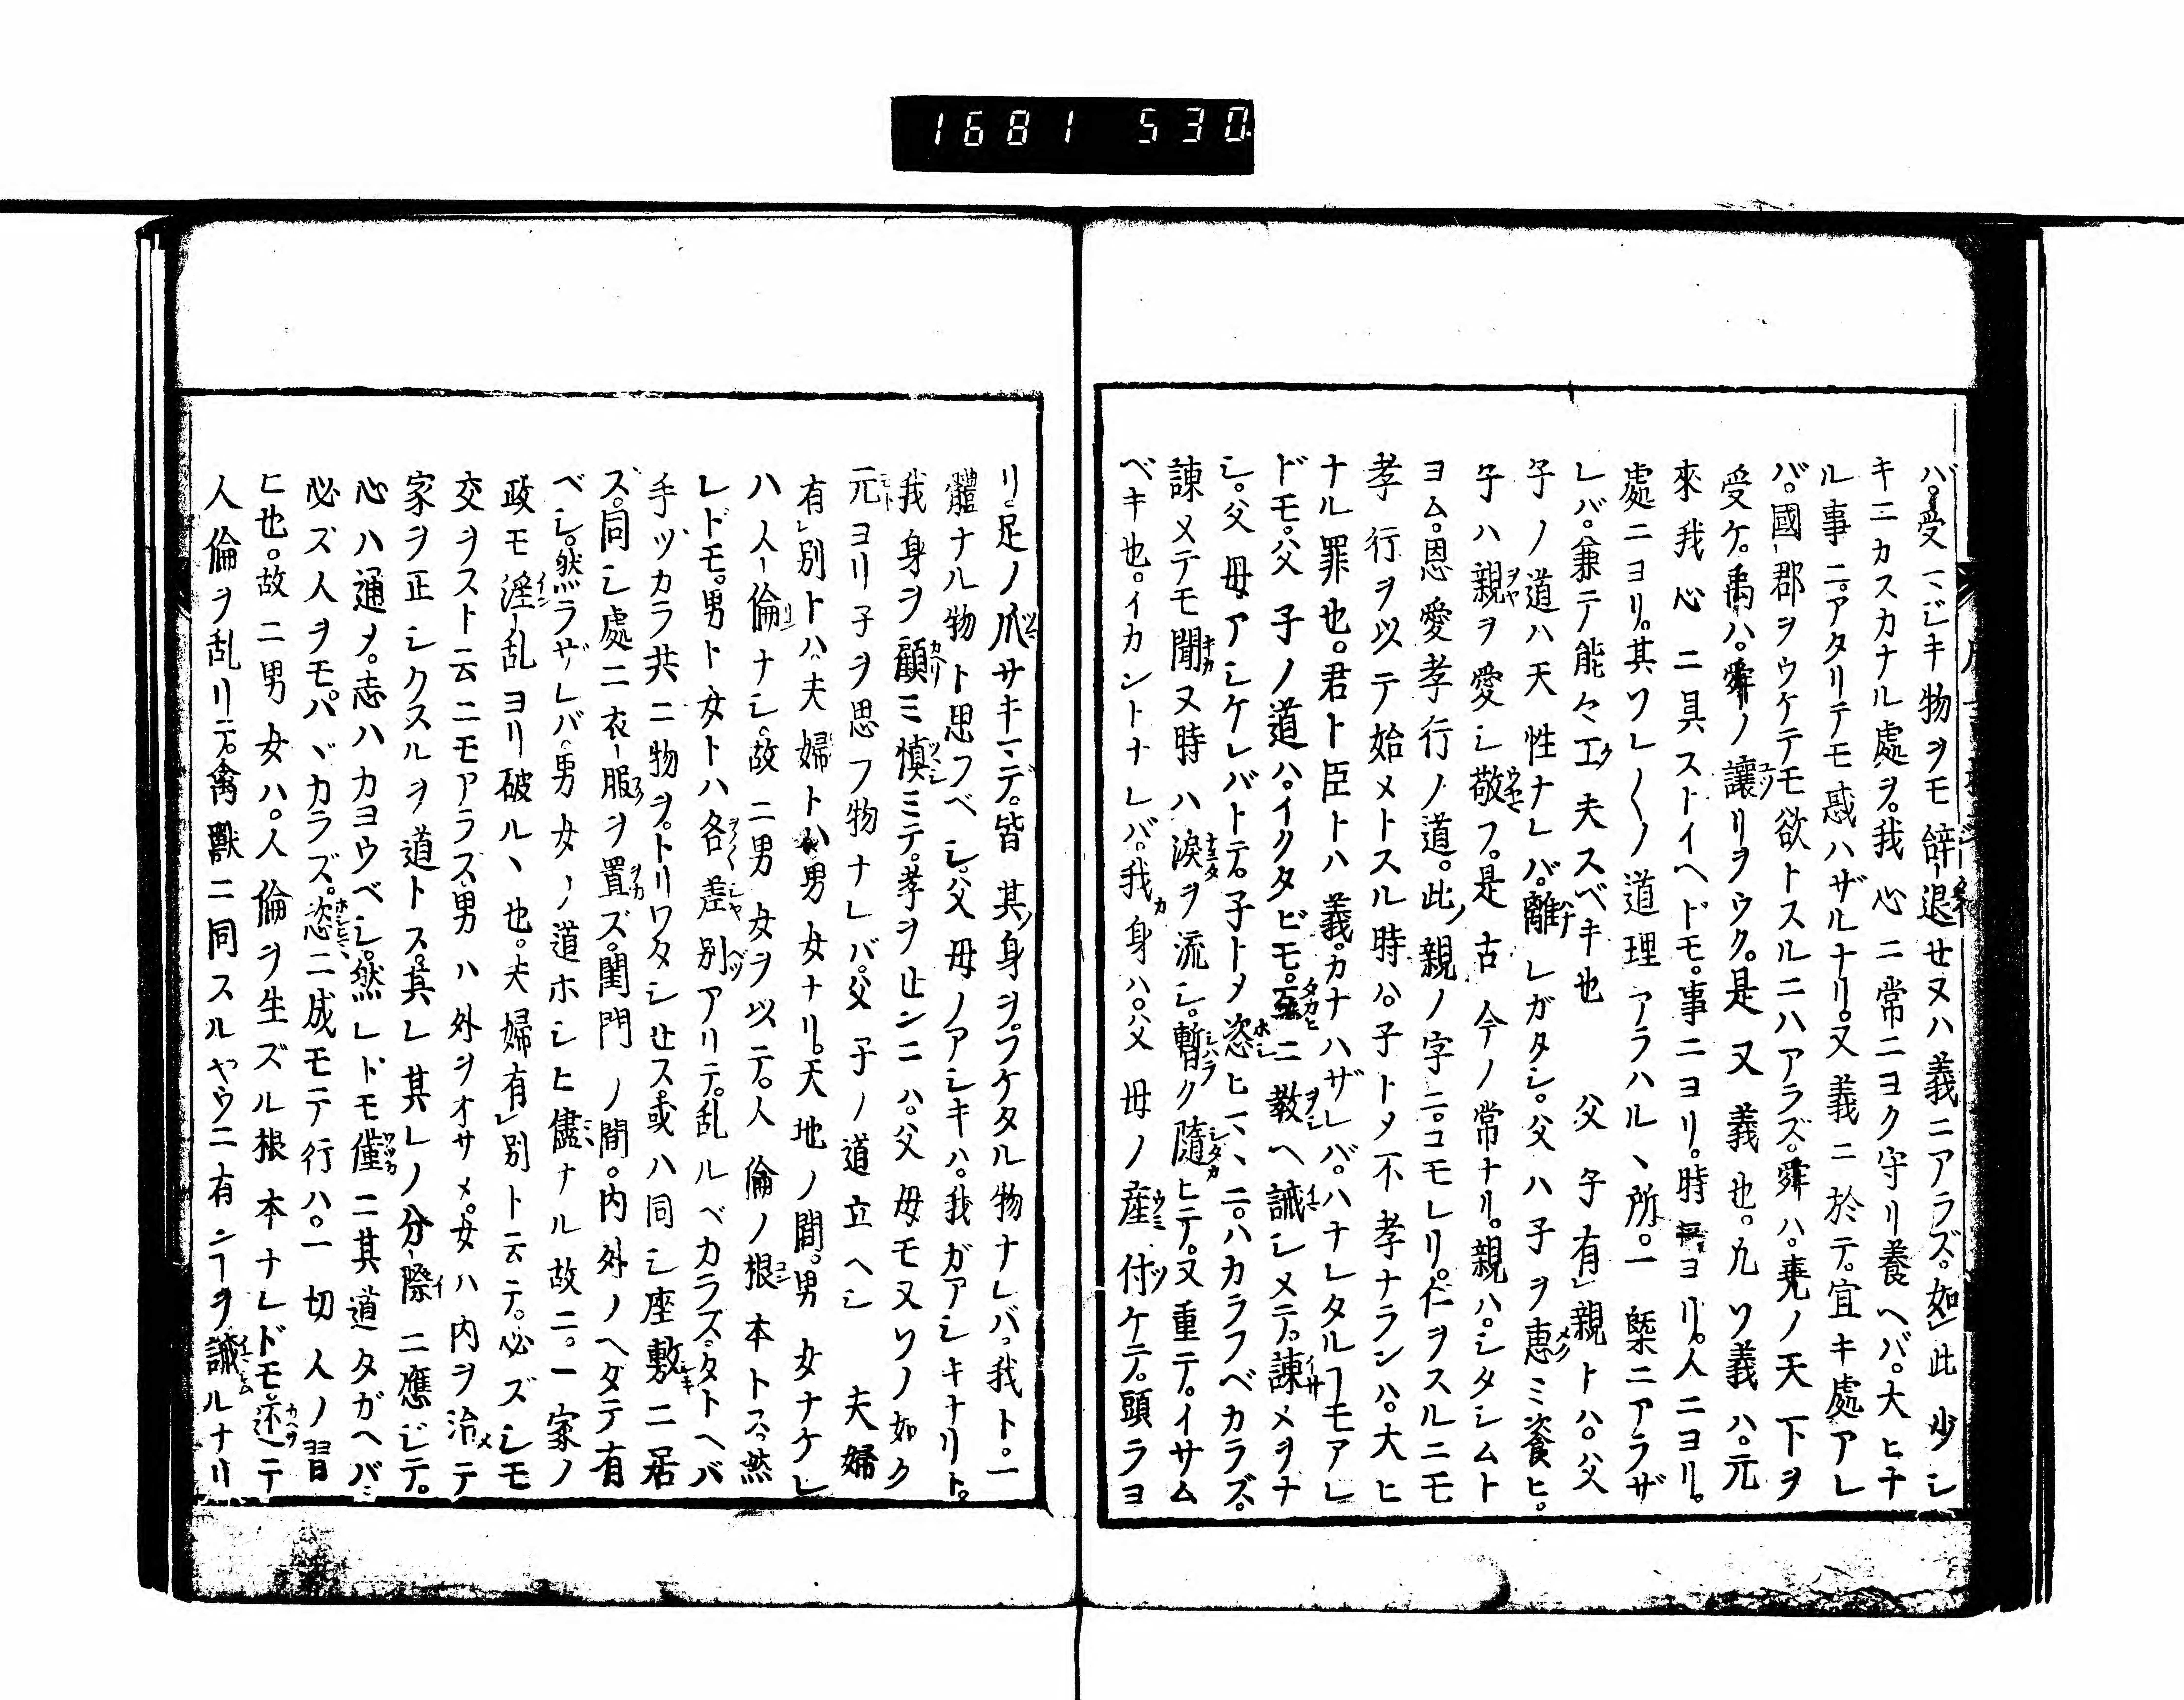 1681 530
バ。受マジキ物ヲモ辞退セヌハ義ニアラズ。如此少シ
キニカスカナル處ヲ。我心ニ常ニヨク守リ養ヘバ。大ヒナ
ル事ニ。アタリテモ惑ハザルナリ。又義ニ於テ。宜キ處アレ
バ。國郡ヲウケテモ欲トスルニハアラズ。舜ハ。堯ノ天下ヲ
受ケ。禹ハ。舜ノ讓リヲウク。是又義也。九ソ義ハ。元
來我心ニ具ストイヘドモ。事ニヨリ。時ニヨリ。人ニヨリ。
處ニヨリ。其ソレ〱ノ道理アラハルヽ所。一槩ニアラザ
レバ。兼テ能々工夫スベキ也 父子有親トハ。父
子ノ道ハ天性ナレバ。離レガタシ。父ハ子ヲ惠ミ養ヒ。
子ハ親ヲ愛シ敬フ。是古今ノ常ナリ。親ハ。シタシムト
ヨム。恩愛孝行ノ道。此親ノ字ニ。コモレリ。仁ヲスルニモ
孝行ヲ以テ始メトスル時ハ。子トメ不孝ナランハ。大ヒ
ナル罪也。君ト臣トハ義。カナハザレバ。ハナレタルヿモアレ
ドモ。父子ノ道ハ。イクタビモ。互ニ教ヘ誡シメテ。諫メヲナ
シ。父母アシケレバトテ。子トメ恣ヒマヽニ。ハカラフベカラズ。
諫メテモ聞又時ハ淚ヲ流シ。暫ク隨ヒテ。又重テ。イサム
ベキ也。イカントナレバ。我身ハ。父母ノ産付ケテ。頭ラヨ
リ。足ノ爪サキマデ。皆其身ヲ。ワケタル物ナレバ。我ト。一
體ナル物ト思フベシ。父母ノアシキハ。我ガアシキナリト。
我身ヲ顧ミ慎ミテ。孝ヲセンニハ。父母モ又ソノ如ク
元ヨリ子ヲ思フ物ナレバ。父子ノ道立ヘシ 夫婦
有別トハ。夫婦トハ男女ナリ。天地ノ間。男女ナケレ
ハ人倫ナシ。故ニ男女ヲ以テ。人倫ノ根本トス。然
レドモ。男ト女トハ各差別アリテ。乱ルベカラズ。タトヘバ
手ツカラ共ニ物ヲ。トリワタシセス。或ハ同シ座敷ニ居
ス。同シ處ニ衣服ヲ置ズ。閨門ノ間。内外ノヘタテ有
ベシ。然ラザレバ。男女ノ道ホシヒ儘ナル故ニ。一家ノ
政モ淫乱ヨリ破ルヽ也。夫婦有別ト云テ。必ズシモ
交ヲスト云ニモアラス。男ハ外ヲオサメ。女ハ内ヲ治メテ
家ヲ正シクスルヲ。道トス。其レ其レノ分際ニ應ジテ。
心ハ通メ。志ハカヨウベシ。然レドモ僅ニ其道タガヘバ。
必ズ人ヲモ。ハヾカラズ。恣ニ成モテ行ハ。一切人ノ習
ヒ也。故ニ男女ハ。人倫ヲ生ズル根本ナレドモ。还テ
人倫ヲ乱リテ。禽獸ニ同スルヤウニ有ンヿヲ誡ルナリ